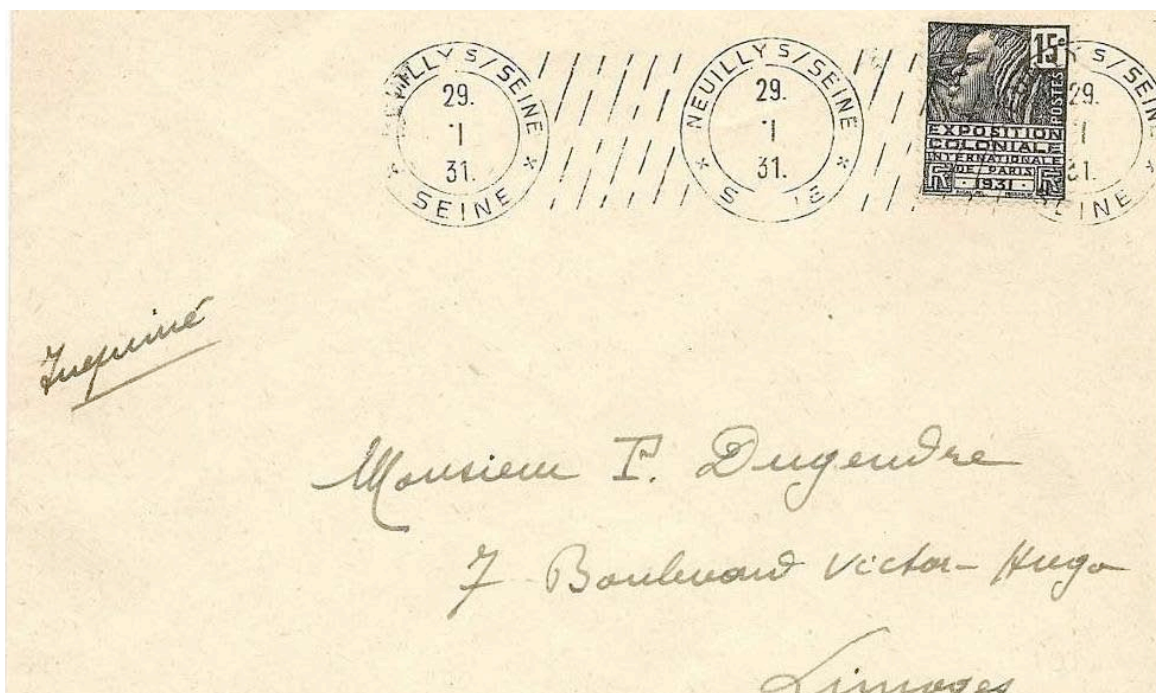 NEUILLY S/SEINE
29.
1
31.
* SEINE *
NEUILLY S/SEINE
29.
1
31.
* S
15c
POSTES
EXPOSITION
COLONIALE
INTERNATIONALE
DE PARIS
RF · 1931 · RF
S/SEINE
29.
1
31.
EINE *
Imprimé
Monsieur P. Dugendre
7 Boulevard Victor-Hugo
Limoges